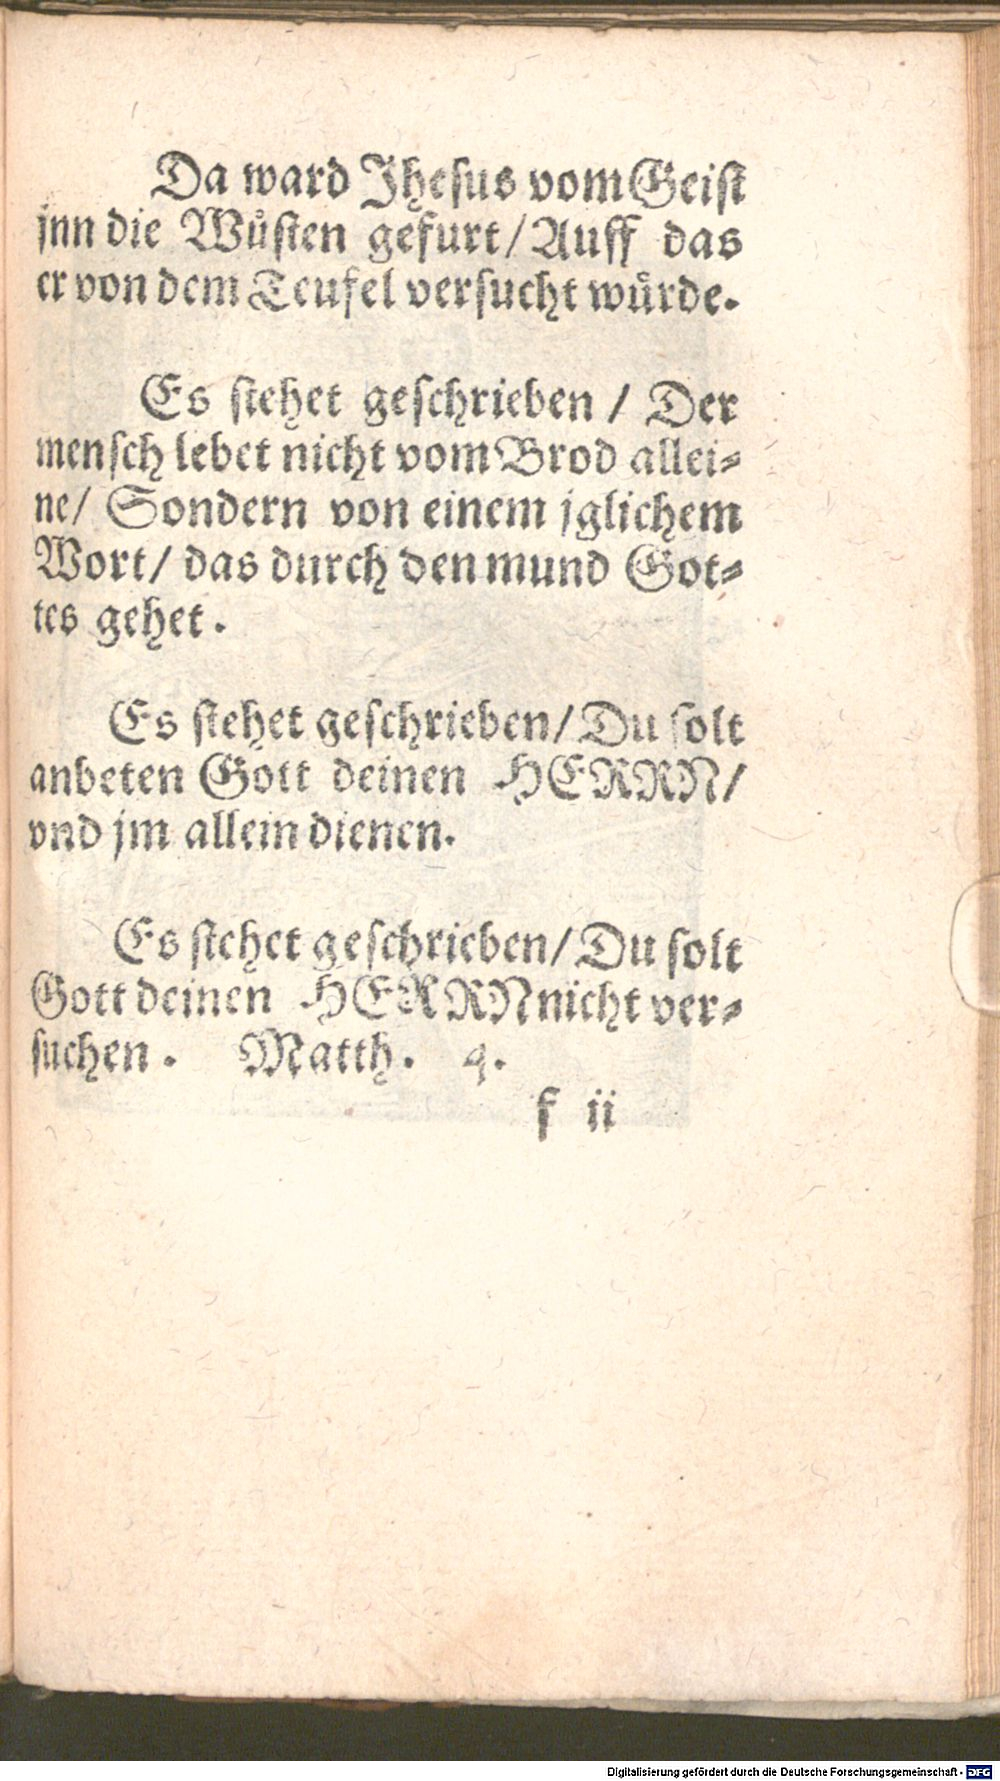 Da ward Jhesus vom Geist
jnn die Wuͤsten gefurt/ Auff das
er von dem Teufel versucht wuͤrde.
Es stehet geschrieben / Der
mensch lebet nicht vom Brod allei⸗
ne/ Sondern von einem jglichem
Wort/ das durch den mund Got⸗
tes gehet.
Es stehet geschrieben/ Du solt
anbeten Gott deinen HERRN/
vnd jm allein dienen.
Es stehet geschrieben/ Du solt
Gott deinen HERRN nicht ver⸗
suchen. Matth. 4.
f ii
Digitalisierung gefördert durch die Deutsche Forschungsgemeinschaft - DFG